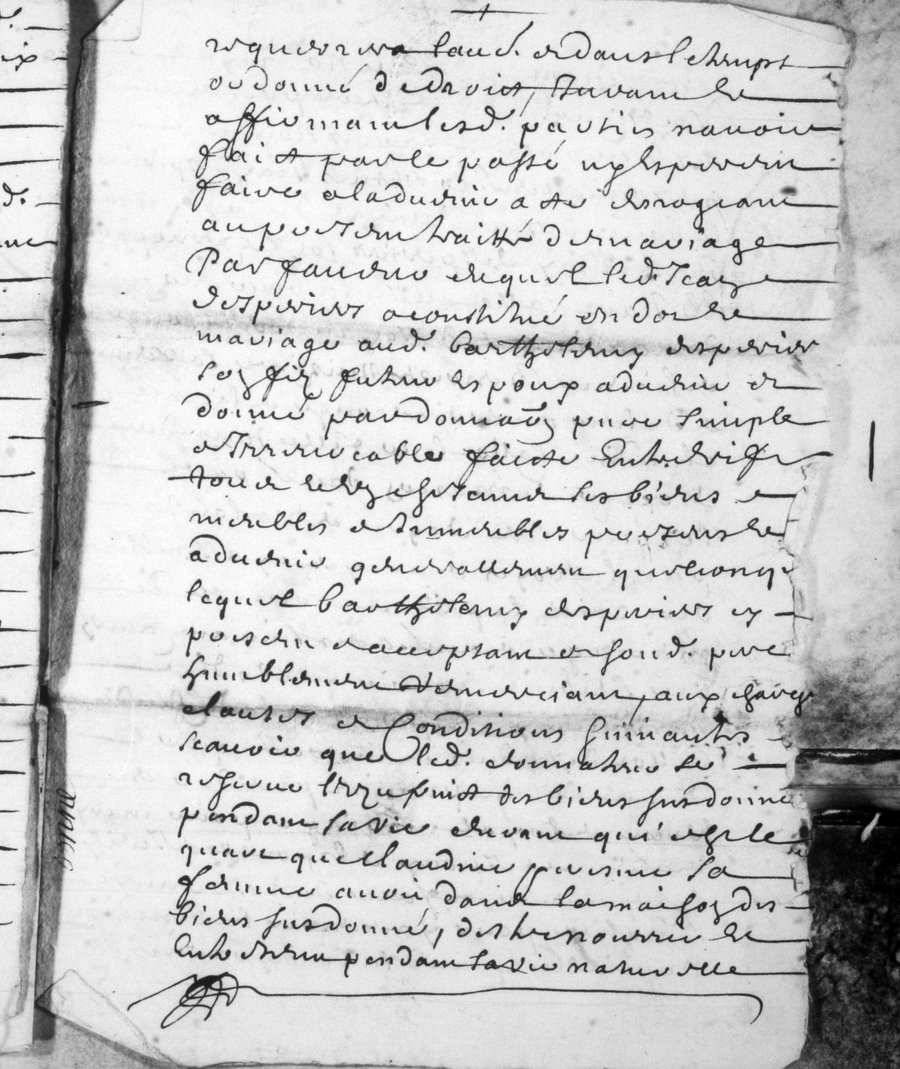 requerera laud. et dans le temps
ordonné de droict,
affirmant lesd. parties n'avoir
faict par le passé ny esperer en
faire a ladvenir acte desrogeant
au present traitté de mariage
Par faveur duquel led. 
Desperiers a constitué en dot de
mariage aud. barthelemy desperier
son fiz futur espoux advenir et
donné par donnaõn pure simple
et irrevocable faicte entre vifz
tous et ung chescuns ses biens
meubles et immeubles presens et
advenir generallement quelconqs
lequel barthelemy desperiers cy
present et acceptant et sond. pere
humblement remerciant, aux charges
clauses et Conditions suivantes
scavoir que led. donnateur se
reserve lusufruict des biens susdonné
pendant sa vie
que Claudine sa
femme aura dans la maison des
biens susdonné, destre nourrie et
entretenu pendant sa vie naturelle